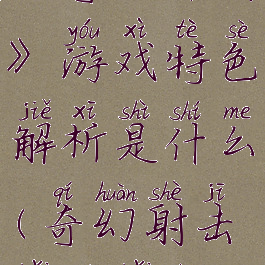 yóu xì tè sè
》游戏特色
jiě xī shì shí me
解析是什么
qí huàn shè jī
(奇幻射击